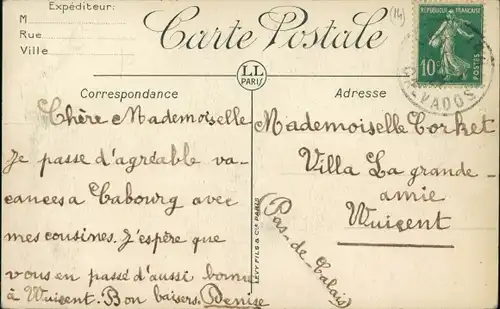 Expéditeur:
M
Rue
Ville
Carte Postale
(14)
REPUBLIQUE FRANÇAISE
10c
POSTES
VADOS
LL
PARIS
Correspondance
Chère Mademoiselle
Je passe d'agréable va-
cances a Cabourg avec
mes cousines. J'espère que
vous en passé d'aussi bonne
à Wuisent. Bon baisers. Denise
LEVY FILS & Cie PARIS
Adresse
Mademoiselle Corket
Villa La grande-
amie
Wuisent
(Pas-de-Calais)